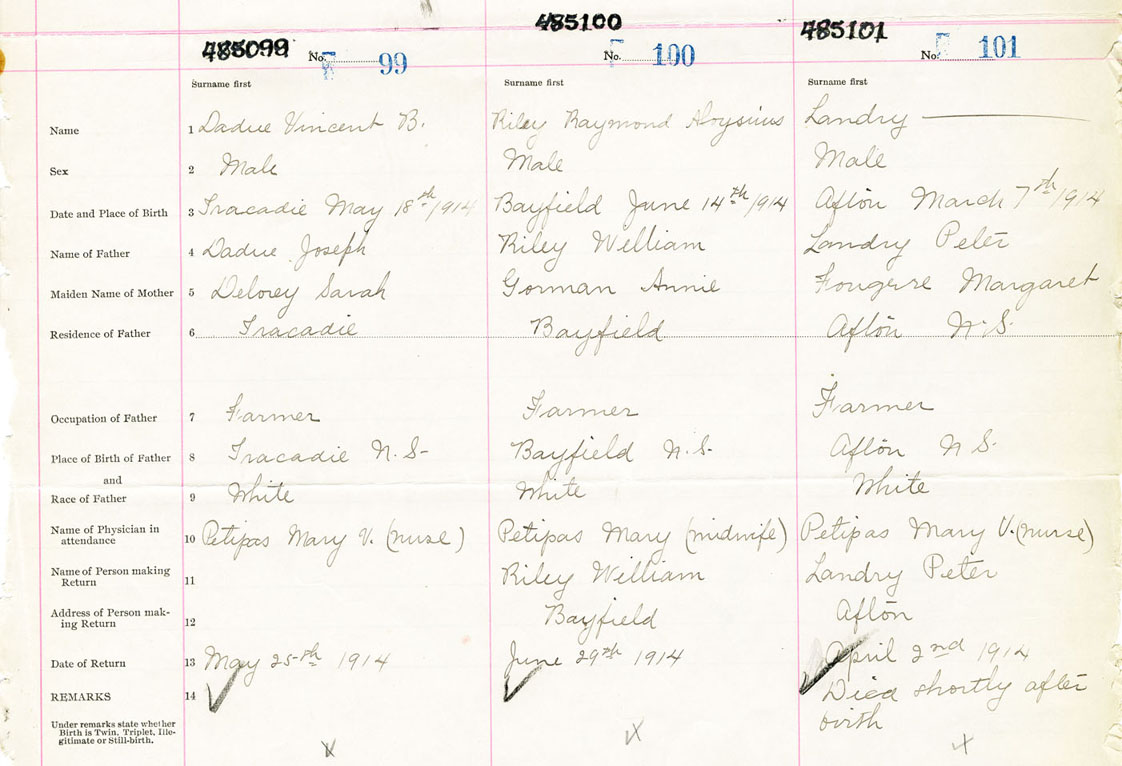 485099 No. F 99 485100 No. F 100 485101 No. F 101
Surname first Surname first Surname first
Name 1 Dadue Vincent B. Riley Raymond Aloysius Landry ———
Sex 2 Male Male Male
Date and Place of Birth 3 Tracadie May 18th/1914 Bayfield June 14th/1914 Afton March 7th/1914
Name of Father 4 Dadue Joseph Riley William Landry Peter
Maiden Name of Mother 5 Delorey Sarah Gorman Annie Fougere Margaret
Residence of Father 6 Tracadie Bayfield Afton N.S.
Occupation of Father 7 Farmer Farmer Farmer
Place of Birth of Father 8 Tracadie N.S- Bayfield N.S. Afton N S
and
Race of Father 9 White White White
Name of Physician in
attendance 10 Petipas Mary V. (nurse) Petipas Mary (midwife) Petipas Mary V. (nurse)
Name of Person making
Return 11 Riley William Landry Peter
Address of Person mak-
ing Return 12 Bayfield Afton
Date of Return 13 May 25th 1914 June 29th 1914 April 2nd 1914
REMARKS 14 Died shortly after
birth
Under remarks state whether
Birth is Twin, Triplet, Ille-
gitimate or Still-birth.